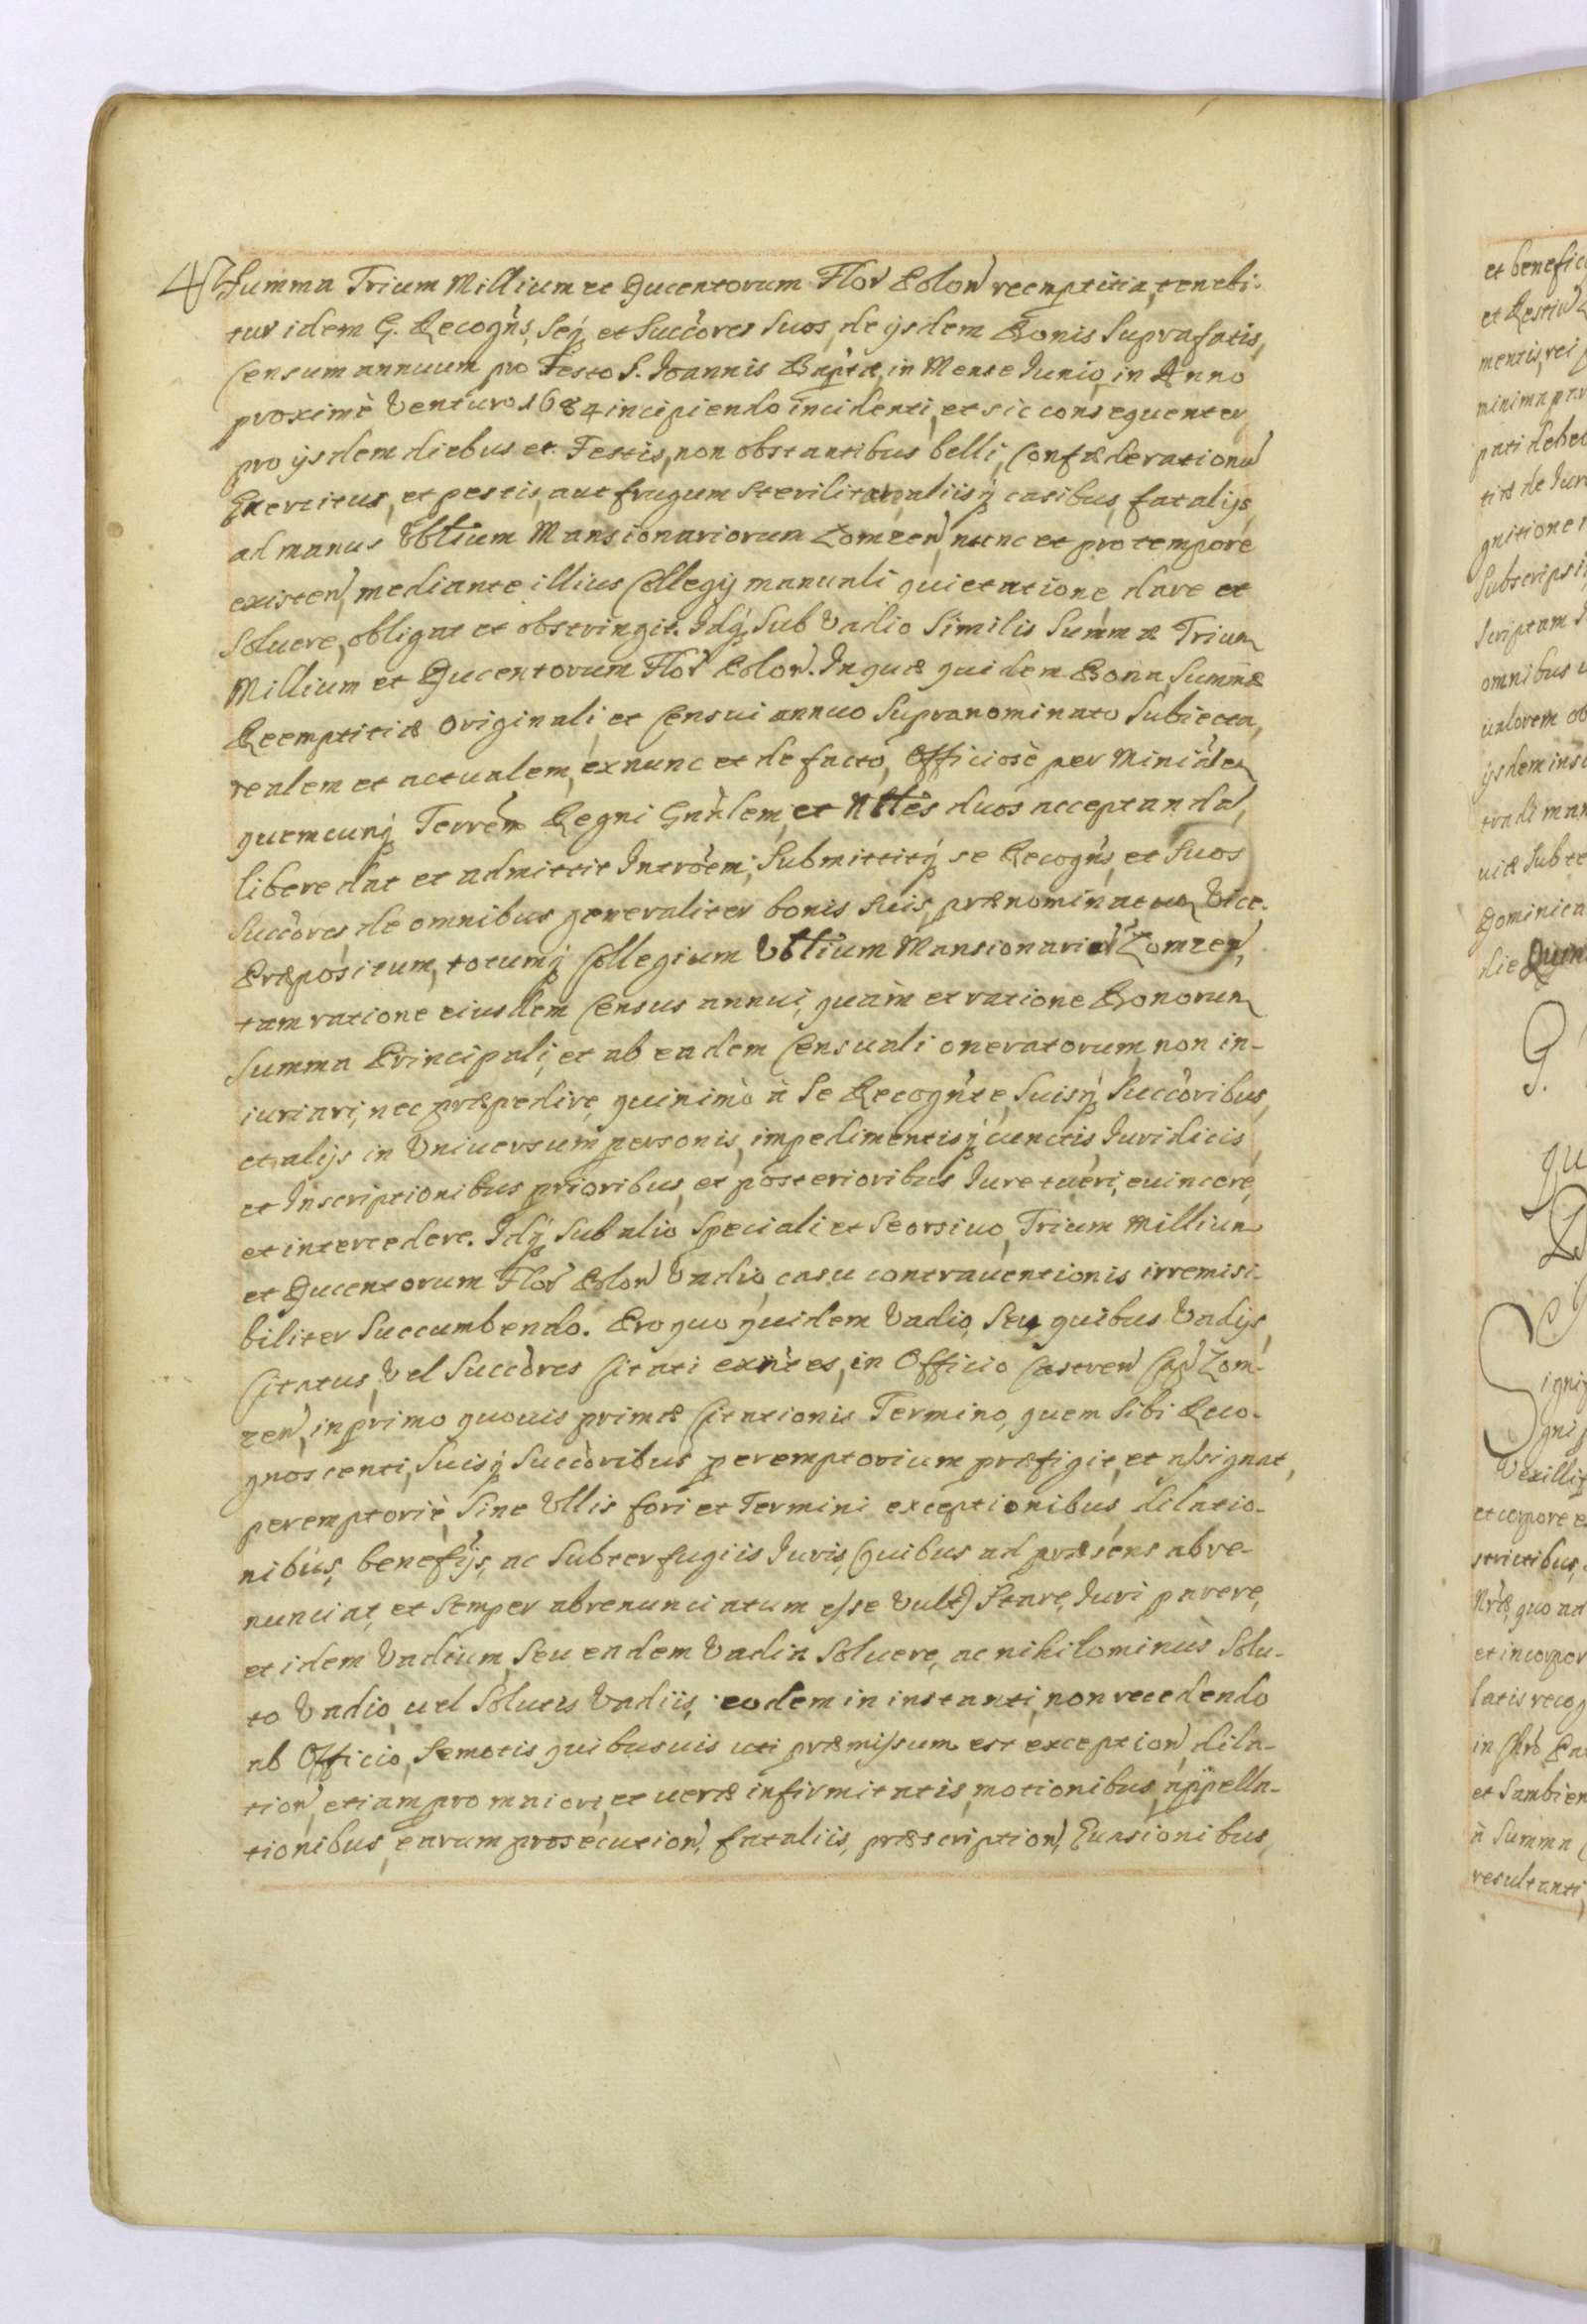 Summa Trium Millium et Ducentorum Flor Polon reemptitia, tenebi-
tur idem G. Recogns, Seq3 et Succores Suos, de ijsdem Bonis Suprafatis,
Censum annuum pro Festo S. Joannis Baptæ, in Mense Junio, in Anno
proximè Venturo 1684 incipiendo incidenti, et sic consequenter,
pro ijsdem diebus et Festis, non obstantibus belli, Confæderation
Exercitus, et pestis, aut frugum sterilitate, aliisq3 casibus, fatalijs,
ad manus Vblium Mansionariorum Lomzen, nunc et pro tempore
existen, mediante illius Collegij manuali quietatione, dare et
Soluere, obligat et obstringit. Idq3 Sub Vadio Similis Summæ Trium
Millium et Ducentorum Flor Polon. In quæ quidem Bona, Summæ
Reemptitiæ Originali, et Censui annuo Supranominato Subiecta,
realem et actualem, ex nunc et de facto, Officiosè per Ministrlem
quemcunq3 Terrem Regni Gnrlem, et Nbles duos acceptandam,
libere dat et admittit Intrõem; Submittitq3 se Recogns, et Suos
Succores, de omnibus generaliter bonis suis, prænominatum Vice-
Præpositum, totumq3 Collegium Vblium Mansionarior Lomzen,
tam ratione eiusdem Census annui, quàm et ratione Bonorum
Summa Principali, et ab eadem Censuali oneratorum, non in-
iuriari, nec præpedire, quinimò à Se Recognte, Suisq3 Succoribus,
et alijs in Vniuersum personis, impedimentisq3 cunctis, Iuridicis,
et Inscriptionibus prioribus, et posterioribus Iure tueri, euincere,
et intercedere. Idq3 Sub alio Speciali et Seorsiuo, Trium Millium
et Ducentorum Flor Polon Vadio, casu contrauentionis irremisi-
biliter Succumbendo. Pro quo quidem Vadio, Seu quibus Vadijs,
Citatus, Vel Succores Citati exntes, in Officio Castren Cap Lom-
zen, in primo quouis primæ Citationis Termino, quem Sibi Reco-
gnoscenti, Suisq3 Succoribus peremptorium præfigit, et assignat,
peremptoriè, Sine Vllis fori et Termini exceptionibus, dilatio-
nibus, beneffijs, ac Subterfugiis Iuris, (quibus ad præsens abre-
nunciat, et Semper abrenunciatum esse Vult) Stare, Iuri parere,
et idem Vadium, Seu eadem Vadia Soluere, ac nihilominus Solu-
to Vadio, uel Solutis Vadiis, eodem in instanti, non recedendo
ab Officio, Semotis quibusuis uti præmissum est exception, dila-
tion, etiam pro maiori, et ueræ infirmitatis, motionibus, appella-
tionibus, earum prosecution, fataliis, præscription, Euasionibus,